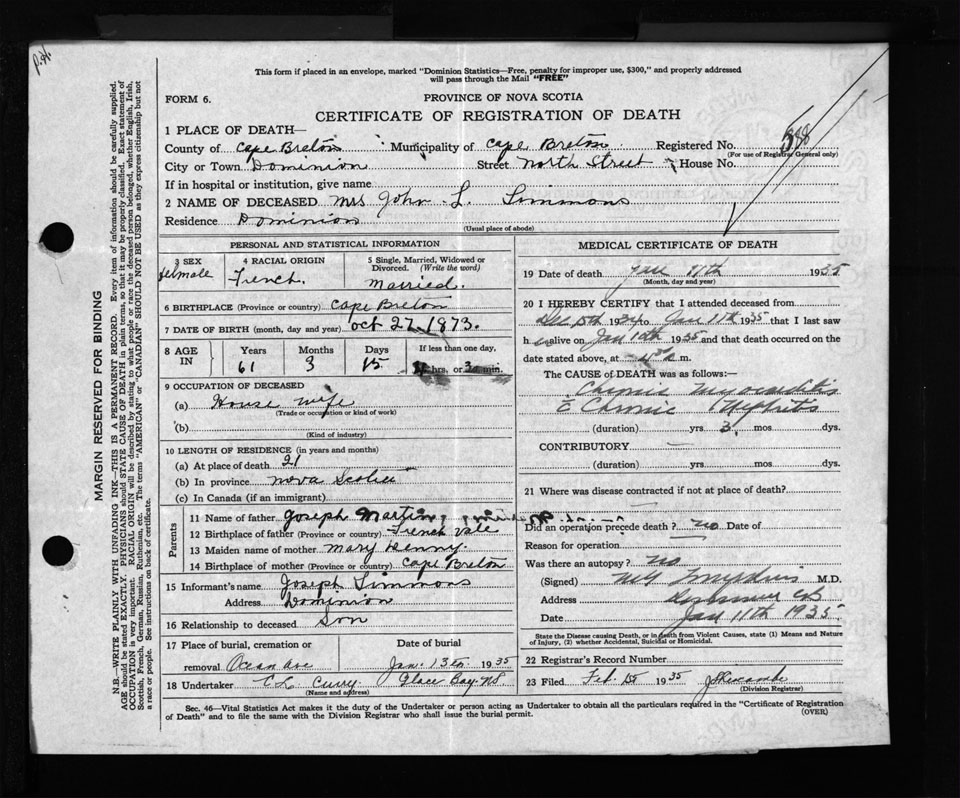 This form if placed in an envelope, marked "Dominion Statistics—Free, penalty for improper use, $300," and properly addressed
will pass through the Mail "FREE"
FORM 6.
PROVINCE OF NOVA SCOTIA
CERTIFICATE OF REGISTRATION OF DEATH
1 PLACE OF DEATH—
County of Cape Breton Municipality of Cape Breton Registered No. 388
(For use of Registrar General only)
City or Town Dominion Street North Street House No.
If in hospital or institution, give name
2 NAME OF DECEASED Mrs John L. Simmons
Residence Dominion
(Usual place of abode)
PERSONAL AND STATISTICAL INFORMATION
3 SEX Female
4 RACIAL ORIGIN French.
5 Single, Married, Widowed or Divorced. (Write the word) Married.
6 BIRTHPLACE (Province or country) Cape Breton
7 DATE OF BIRTH (month, day and year) Oct 27, 1873.
8 AGE IN Years Months Days If less than one day,
61 3 15 hrs. or min.
9 OCCUPATION OF DECEASED
(a) House wife
(Trade or occupation or kind of work)
(b)
(Kind of industry)
10 LENGTH OF RESIDENCE (in years and months)
(a) At place of death 21
(b) In province Nova Scotia
(c) In Canada (if an immigrant)
Parents
11 Name of father Joseph Martin
12 Birthplace of father (Province or country) French Vale
13 Maiden name of mother Mary Denny.
14 Birthplace of mother (Province or country) Cape Breton
15 Informant's name Joseph Simmons
Address Dominion
16 Relationship to deceased Son
17 Place of burial, cremation or removal Ocean Ave
Date of burial Jan. 13th 1935
18 Undertaker C L Curry Glace Bay NS
(Name and address)
MEDICAL CERTIFICATE OF DEATH
19 Date of death Jan 11th 1935
(Month, day and year)
20 I HEREBY CERTIFY that I attended deceased from
Dec 15th 1934 to Jan 11th 1935 that I last saw
h er alive on Jan 10th 1935 and that death occurred on the
date stated above, at m.
The CAUSE of DEATH was as follows:—
Chronic Myocarditis
c Chronic Nephritis
(duration) yrs 3 mos dys.
CONTRIBUTORY
(duration) yrs mos dys.
21 Where was disease contracted if not at place of death?
Did an operation precede death? no Date of
Reason for operation
Was there an autopsy? no
(Signed) M.D.
Address
Date Jan 11th 1935
State the Disease causing Death, or in death from Violent Causes, state (1) Means and Nature
of Injury, (2) whether Accidental, Suicidal or Homicidal.
22 Registrar's Record Number
23 Filed Feb 15 1935
(Division Registrar)
Sec. 46—Vital Statistics Act makes it the duty of the Undertaker or person acting as Undertaker to obtain all the particulars required in the "Certificate of Registration
of Death" and to file the same with the Division Registrar who shall issue the burial permit.
(OVER)
MARGIN RESERVED FOR BINDING
N.B.—WRITE PLAINLY WITH UNFADING INK—THIS IS A PERMANENT RECORD. Every item of information should be carefully supplied.
AGE should be stated EXACTLY. PHYSICIANS should STATE CAUSE OF DEATH in plain terms, so that it may be properly classified. Exact statement of
OCCUPATION is very important. RACIAL ORIGIN will be described by stating to what people or race the deceased person belonged, whether English, Irish,
Scottish, French, German, Russian, Ruthenian, etc. The terms "AMERICAN" or "CANADIAN" SHOULD NOT BE USED as they express citizenship but not
a race or people. See instructions on back of certificate.